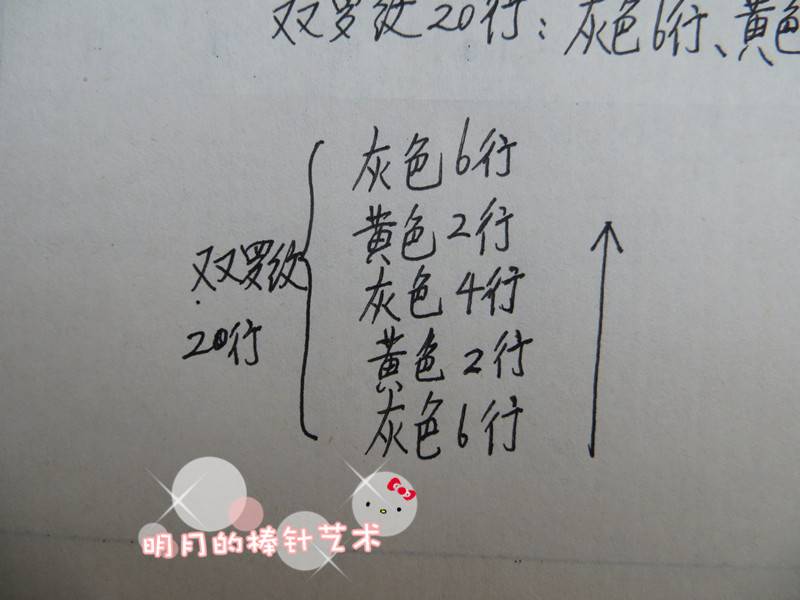 双罗纹20行：灰色6行、黄色
灰色6行
黄色2行
双罗纹
灰色4行
20行
黄色2行
灰色6行
明月的棒针艺术